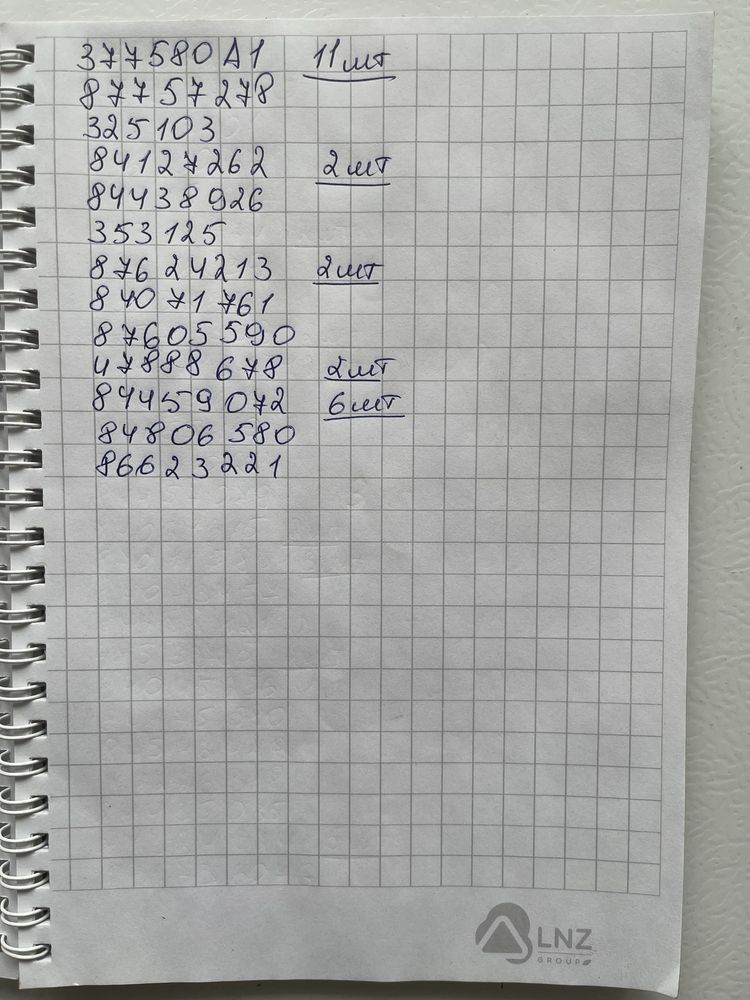 377580A1 11шт
87757278
325103
84127262 2шт
84438926
353125
87624213 2шт
84071761
87605590
47888678 2шт
84459072 6шт
84806580
86623221
LNZ
GROUP